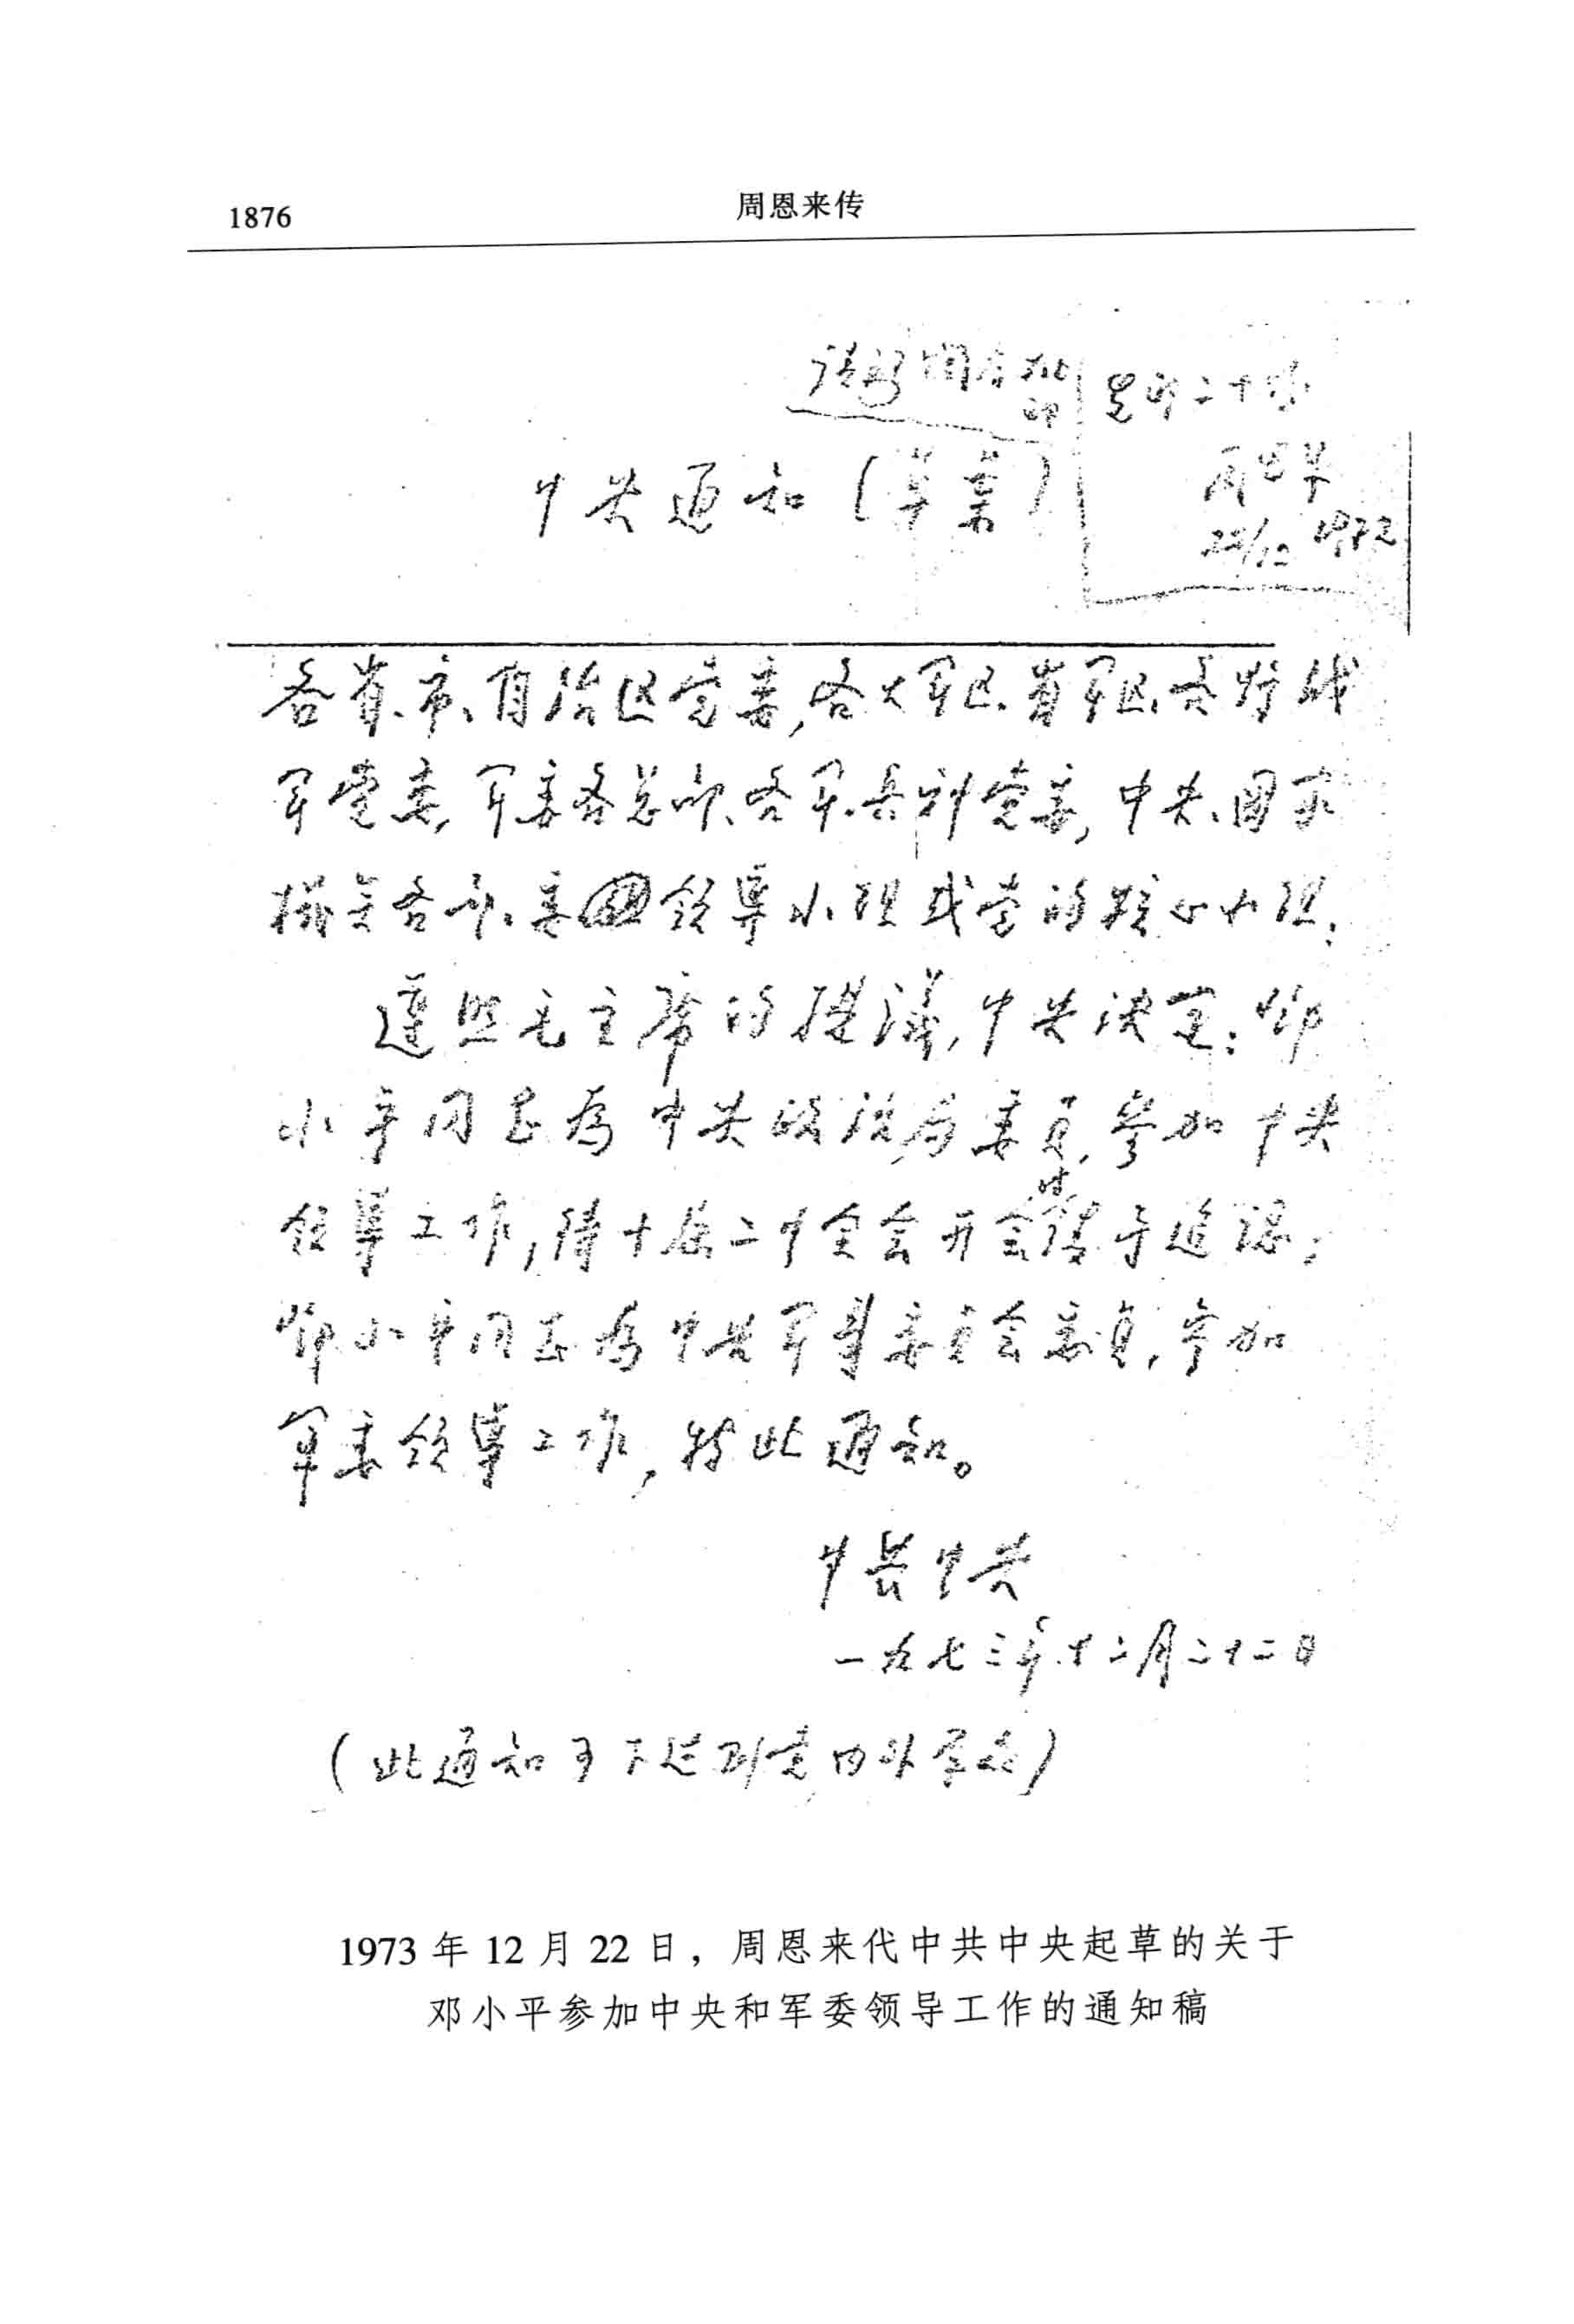 1876
周恩来传
中央通知（草案）
各省、市、自治区党委，各大军区、省军区、各野战
军党委，军委各总部、各军、兵种党委，中央、国家
机关各部、委领导小组或党的核心小组：
遵照毛主席的提议，中央决定：邓
小平同志为中央政治局委员，参加中央
领导工作，待十届二中全会开会时请予追认；
邓小平同志为中央军事委员会委员，参加
军委领导工作，特此通知。
中共中央
一九七三年十二月二十二日
（此通知可下达到党内外群众）
1973 年 12 月 22 日，周恩来代中共中央起草的关于
邓小平参加中央和军委领导工作的通知稿